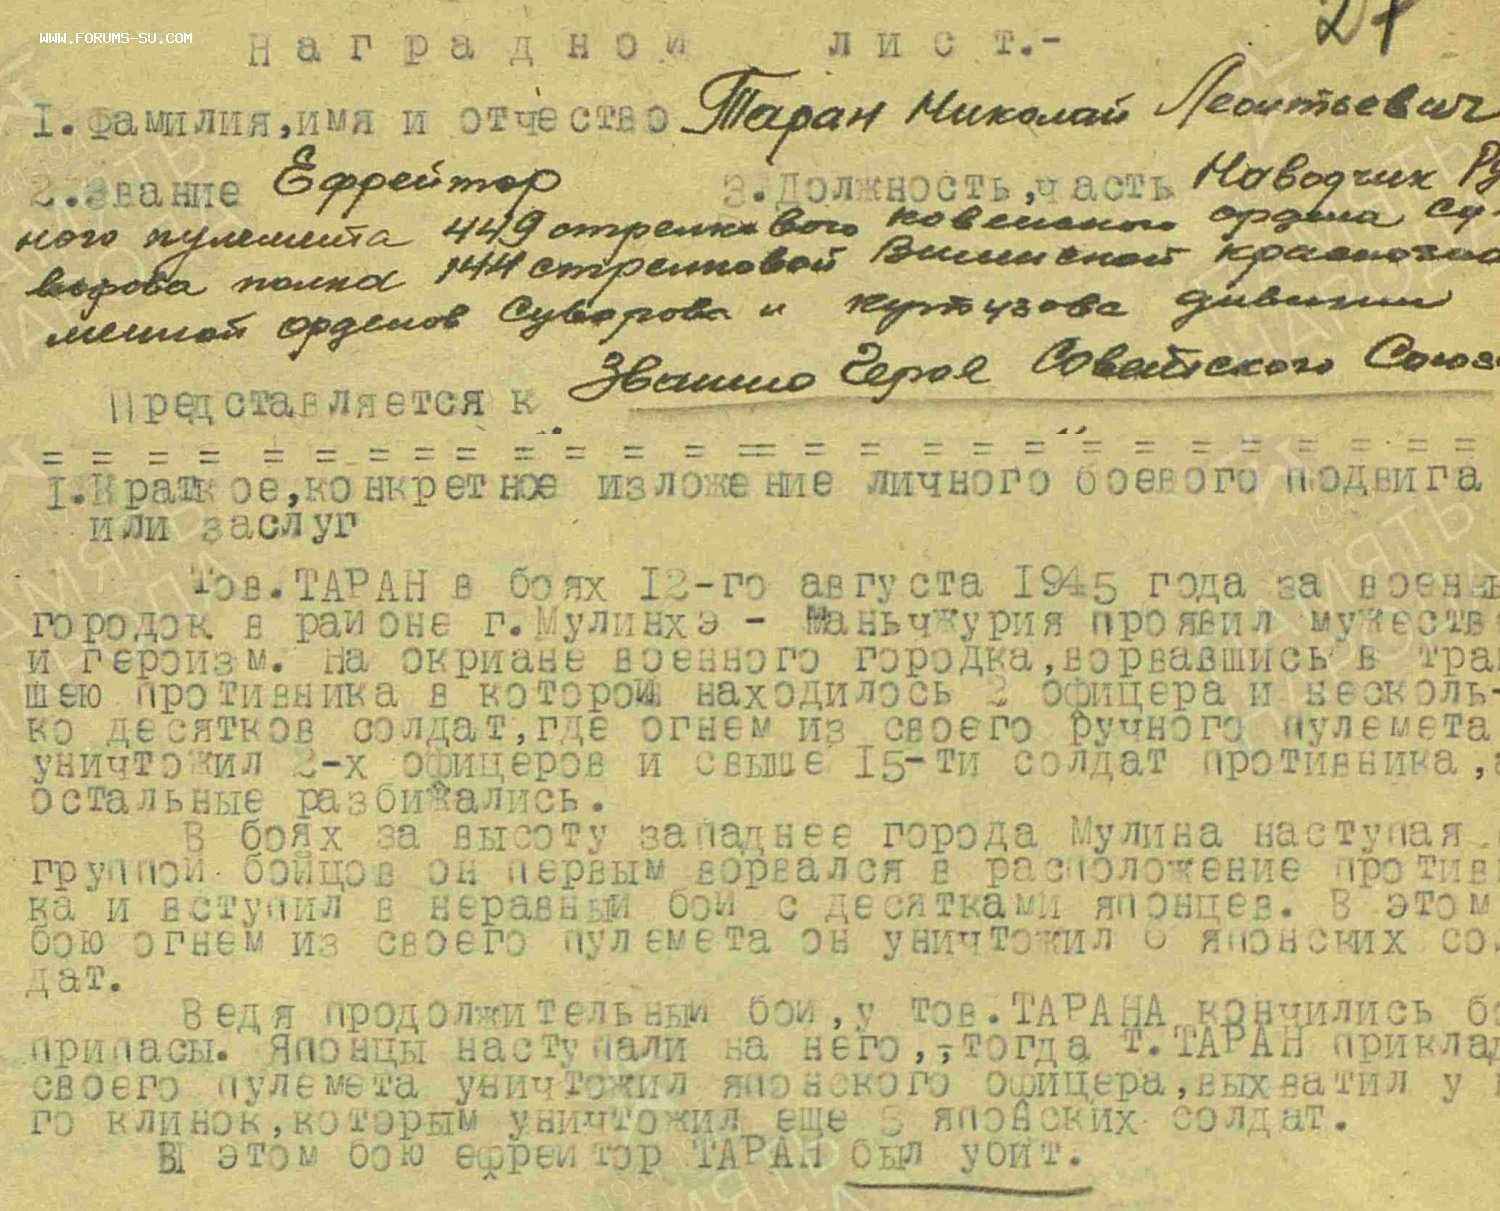 WWW.FORUMS-SU.COM
27
Наградной лист.-
I.Фамилия,имя и отчество Таран Николай Леонтьевич
2.Звание Ефрейтор 3.Должность,часть Наводчик Ру
ного пулемета 449 стрелкового ковенского ордена Су-
ворова полка 144 стрелковой Виленской краснозна
менной орденов Суворова и кутузова дивизии
Представляется к Званию Героя Советского Союз
= = = = = = = = = = = = = = = = = = = = = = = = = =
I.Краткое,конкретное изложение личного боевого подвига
или заслуг
Тов.ТАРАН в боях 12-го августа 1945 года за военны
городок в районе г.Мулинхэ - Маньчжурия проявил мужеств
и героизм. На окриане военного городка,ворвавшись в тран
шею противника в которой находилось 2 офицера и несколь-
ко десятков солдат,где огнем из своего ручного пулемета
уничтожил 2-х офицеров и свыше 15-ти солдат противника,а
остальные разбижались.
В боях за высоту западнее города Мулина наступая
группой бойцов он первым ворвался в расположение против
ка и вступил в неравный бой с десятками японцев. В этом
бою огнем из своего пулемета он уничтожил 6 японских со
дат.
Ведя продолжительный бой,у тов.ТАРАНА кончились бо
припасы. Японцы наступали на него,-тогда т.ТАРАН приклад
своего пулемета уничтожил японского офицера,выхватил у н
го клинок,которым уничтожил еще 3 японских солдат.
В этом бою ефрейтор ТАРАН был убит.